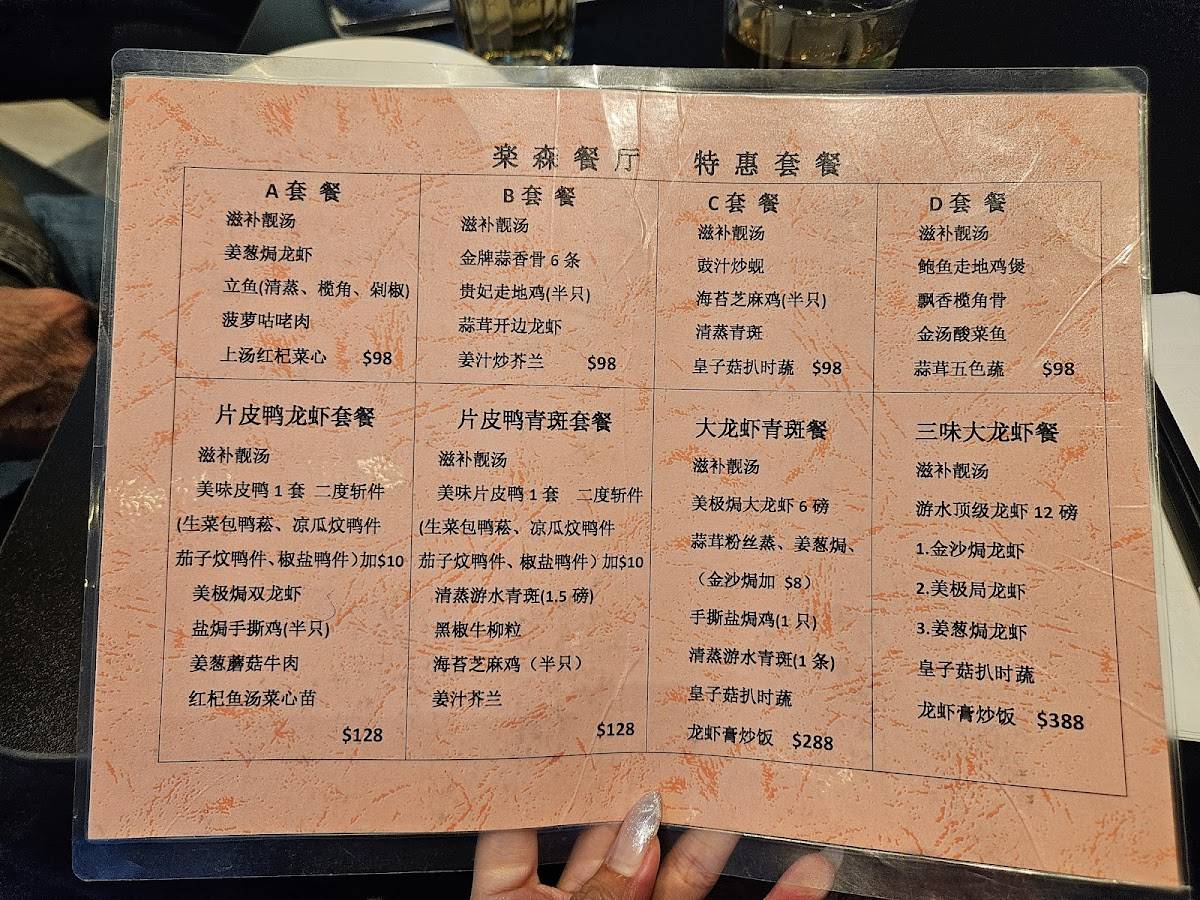 楽森餐厅 特惠套餐
A套餐
滋补靓汤
姜葱焗龙虾
立鱼(清蒸、榄角、剁椒)
菠萝咕咾肉
上汤红杞菜心 $98
B套餐
滋补靓汤
金牌蒜香骨6条
贵妃走地鸡(半只)
蒜茸开边龙虾
姜汁炒芥兰 $98
C套餐
滋补靓汤
豉汁炒蚬
海苔芝麻鸡(半只)
清蒸青斑
皇子菇扒时蔬 $98
D套餐
滋补靓汤
鲍鱼走地鸡煲
飘香榄角骨
金汤酸菜鱼
蒜茸五色蔬 $98
片皮鸭龙虾套餐
滋补靓汤
美味皮鸭1套 二度斩件
(生菜包鸭菘、凉瓜炆鸭件
茄子炆鸭件、椒盐鸭件)加$10
美极焗双龙虾
盐焗手撕鸡(半只)
姜葱蘑菇牛肉
红杞鱼汤菜心苗
$128
片皮鸭青斑套餐
滋补靓汤
美味片皮鸭1套 二度斩件
(生菜包鸭菘、凉瓜炆鸭件
茄子炆鸭件、椒盐鸭件)加$10
清蒸游水青斑(1.5磅)
黑椒牛柳粒
海苔芝麻鸡（半只）
姜汁芥兰
$128
大龙虾青斑餐
滋补靓汤
美极焗大龙虾6磅
蒜茸粉丝蒸、姜葱焗、
（金沙焗加 $8）
手撕盐焗鸡(1只)
清蒸游水青斑(1条)
皇子菇扒时蔬
龙虾膏炒饭 $288
三味大龙虾餐
滋补靓汤
游水顶级龙虾12磅
1.金沙焗龙虾
2.美极局龙虾
3.姜葱焗龙虾
皇子菇扒时蔬
龙虾膏炒饭 $388